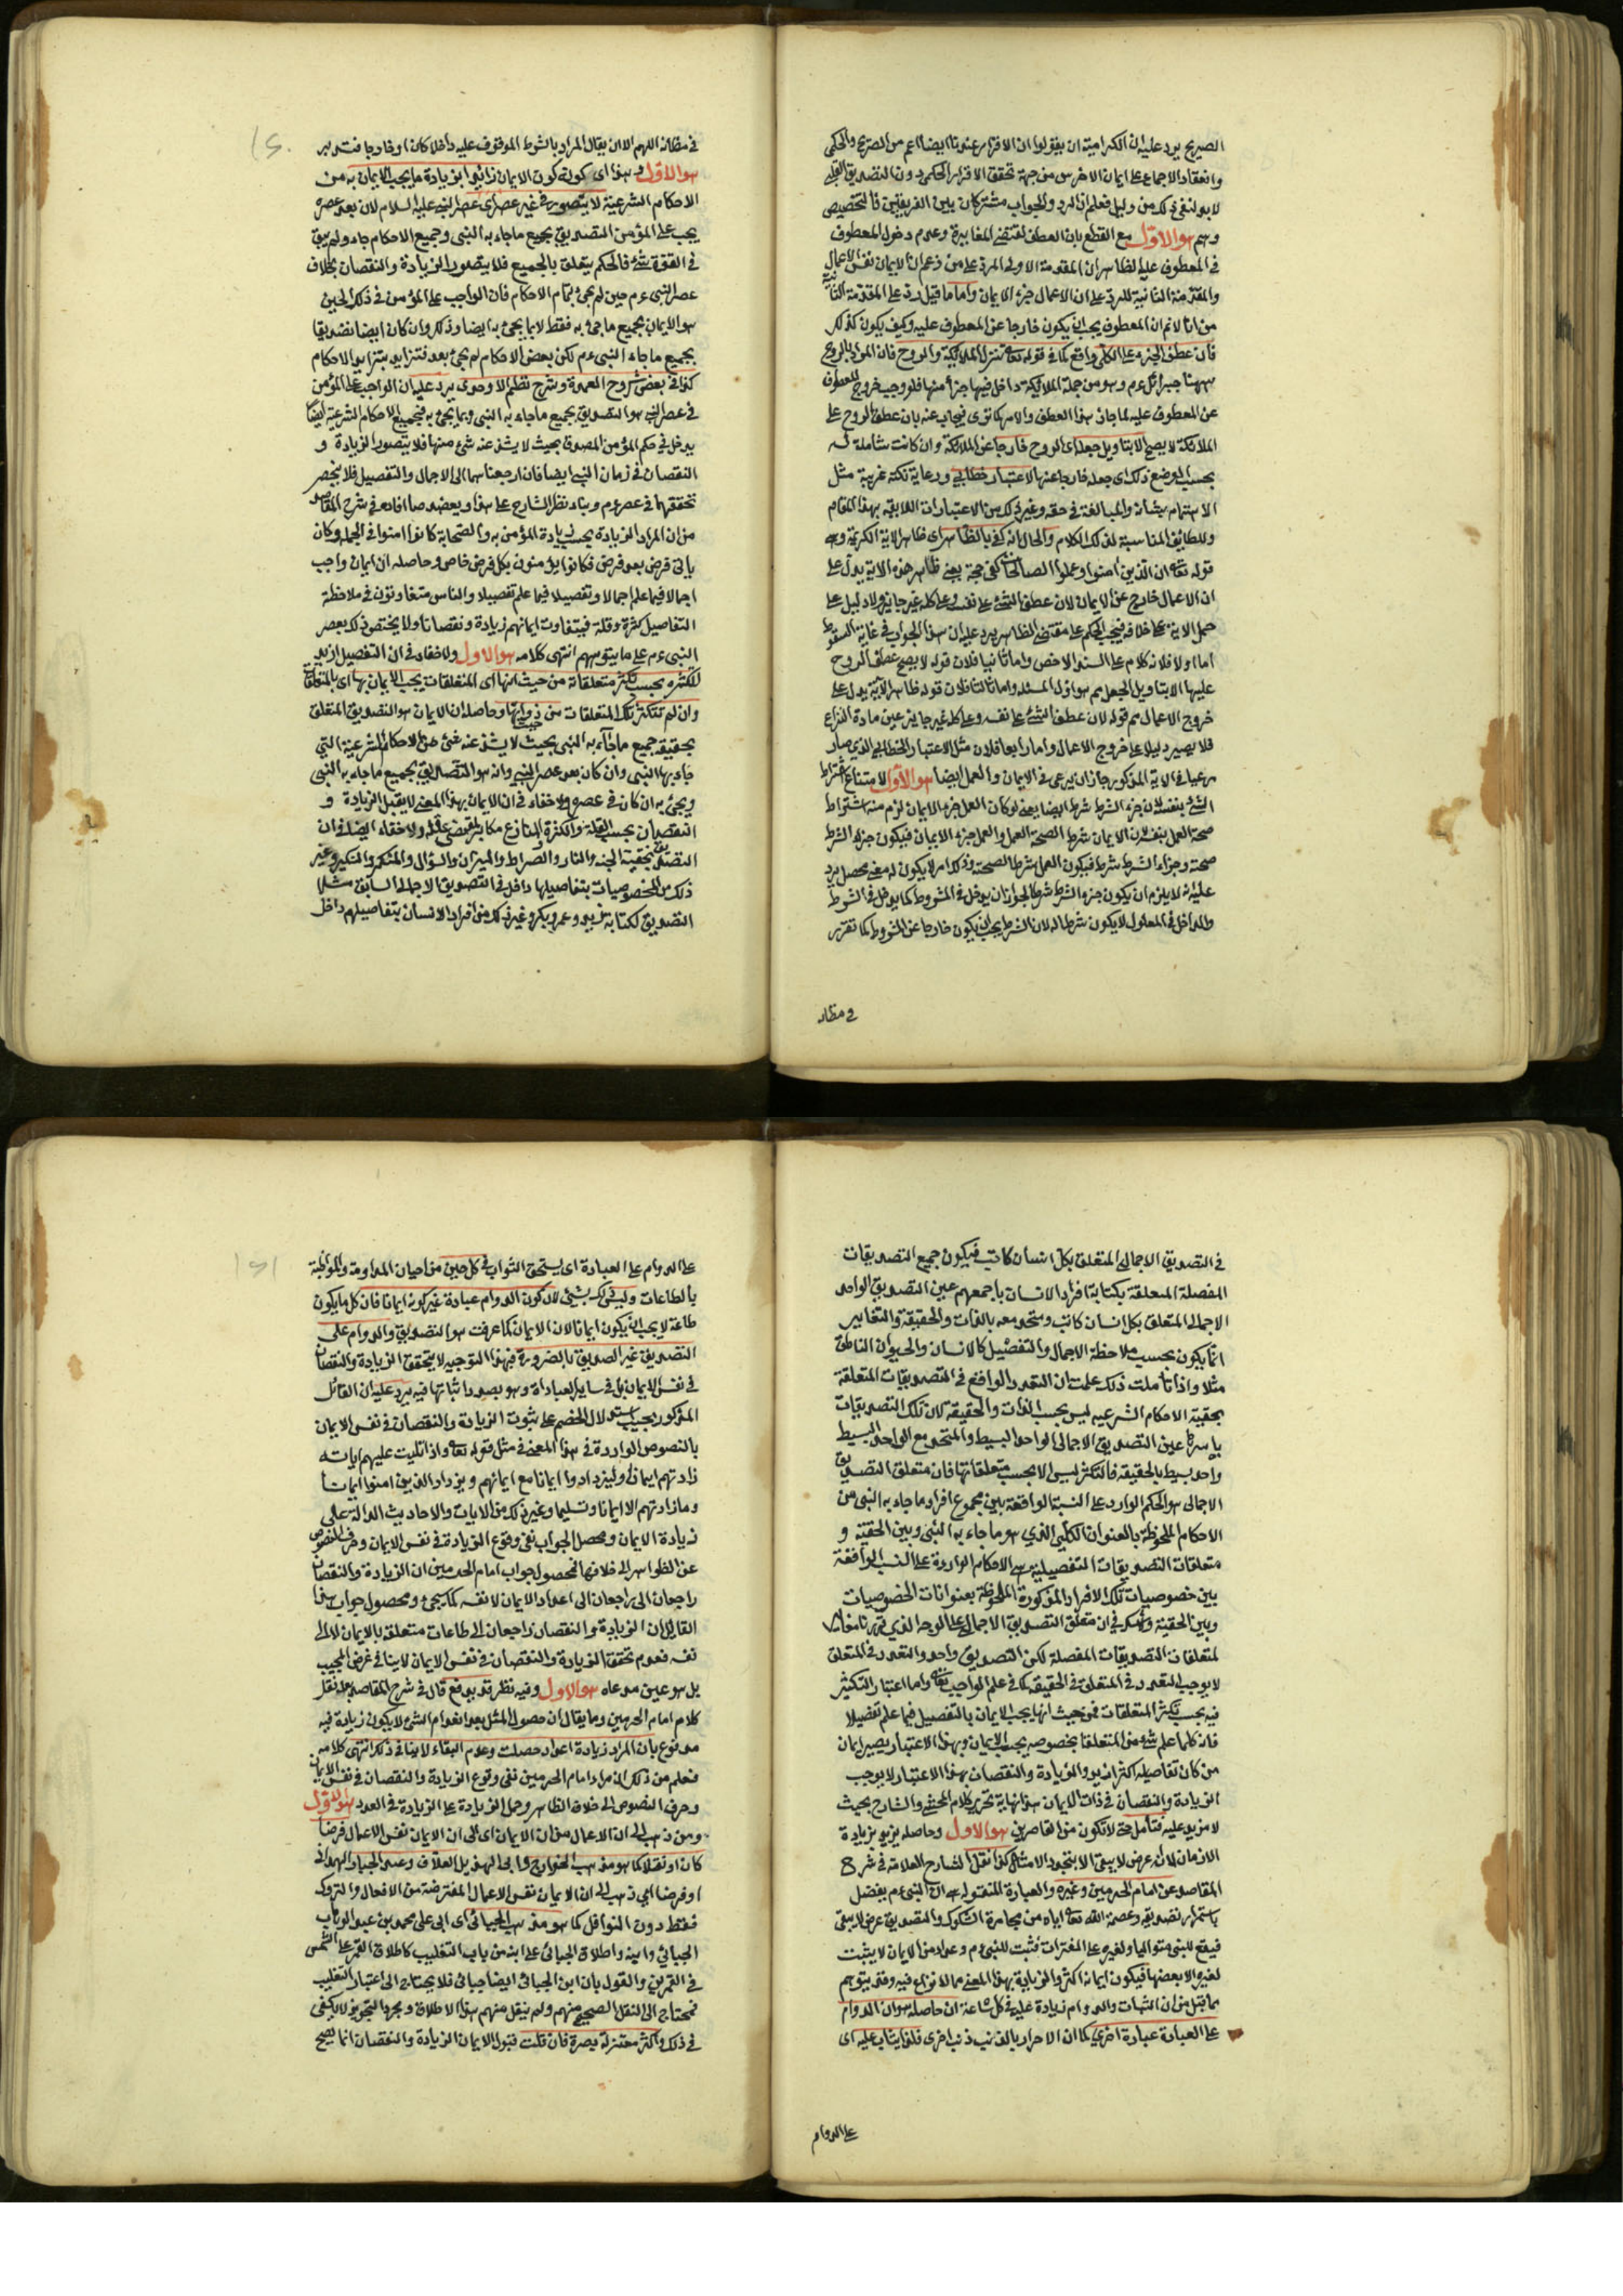 الصريح يرد عليه ان الكرامية ان يقولوا ان الاقرار عندنا ايضا اعم من الصريح والحكمى
وانعقاد الاجماع على ايمان الاخرس من جهة تحقق الاقرار الحكمى دون التصديق القلبى
لابد لنفى ذلك من دليل فعلم ان الرد والجواب مشتركان بين الفريقين فالتخصيص
وسم هو الاول مع القطع بان العطف يقتضى المغايرة وعدم دخول المعطوف
فى المعطوف عليه الظاهر ان المقدمة الاولى للرد على من زعم ان الايمان نفس الاعمال
والمقدمة الثانية للرد على ان الاعمال جزء الايمان واما ما قيل رد على المقدمة الثانية
من انا لانم ان المعطوف يجب ان يكون خارجا عن المعطوف عليه وكيف يكون كذلك
فان عطف الجزء على الكل واقع كما فى قوله تعالى تنزل الملائكة والروح فان المراد بالروح
ههنا جبرائل عم وهو من جملة الملائكة داخل فيها جزء منها فلو وجب خروج المعطوف
عن المعطوف عليه لما جاز هذا العطف والامر كما ترى فيجاب عنه بان عطف الروح على
الملائكة لا يصح الا بتاويل جعله اى الروح خارجا عن الملائكة وان كانت شاملة له
بحسب الوضع ذلك اى جعله خارجا عنها لاعتبار خطابى ورعاية نكتة غريبة مثل
الاهتمام بشانه والمبالغة فى حقه وغير ذلك من الاعتبارات اللايقة بهذا المقام
واللطايف المناسبة لذلك الكلام والحال انه كفى بالظاهر اى ظاهر الاية الكريمة وهى
قوله تعالى ان الذين امنوا وعملوا الصالحات كفى حجة يعنى ظاهر هذه الاية يدل على
ان الاعمال خارج عن الايمان لان عطف الشئ على نفسه وعلى كله غير جايز ولا دليل على
حمل الاية على خلافه فيجب الحكم على مقتضى الظاهر يرد عليه ان هذا الجواب فى غاية السقوط
اما اولا فلانه كلام على السند الاخص واما ثانيا فلان قوله لا يصح عطف الروح
عليها الا بتاويل الجعل مم هو اول المسئلة واما ثالثا فلان قوله ظاهر الآية يدل على
خروج الاعمال مم قوله لان عطف الشئ على نفسه وعلى كله غير جايز عين مادة النزاع
فلا يصير دليلا على خروج الاعمال واما رابعا فلان مثل الاعتبار الخطابى الذى صار
مرعيا فى الاية المذكور جاز ان يرعى فى الايمان والعمل ايضا هو الاول لامتناع اشتراط
الشئ بنفسه لان جزء الشرط شرط ايضا يعنى لو كان العمل جزء الايمان لزم منه اشتراط
صحة العمل بنفسه لان الايمان شرط الصحة العمل والعمل جزء الايمان فيكون جزء الشرط
صحة وجزء الشرط شرط فيكون العمل شرطا لصحته وذلك امر لا يكون له معنى محصل يرد
عليه انه لا يلزم ان يكون جزء الشرط شرطا لجواز ان يدخل فى المشروط كما يدخل فى الشرط
والداخل فى المعلول لا يكون شرطا له لان الشرط يجب ان يكون خارجا عن المشروط كما تقرر
فى مظانه
فى مظانه اللهم الا ان يقال المراد بالشرط الموقوف عليه داخلا كان او خارجا فتدبر
هو الاول وهذا اى كونه كون الايمان زائدا بزيادة ما يجب الايمان به من
الاحكام الشرعية لا يتصور فى غير عصر اى عصر النبى عليه السلام لان بعد عصره
يجب على المؤمن التصديق بجميع ما جاء به النبى وجميع الاحكام جاء ولم يبق
فى القوة شئ فالحكم يتعلق بالجميع فلا يتصور الزيادة والنقصان بخلاف
عصر النبى عم حين لم يجئ تمام الاحكام فان الواجب على المؤمن فى ذلك الحين
هو الايمان بجميع ما جئ به فقط لا بما يجئ به ايضا وذلك وان كان ايضا تصديقا
بجميع ما جاء النبى عم لكن بعض الاحكام لم يجئ بعد فتزايد بتزايد الاحكام
كذا فى بعض شروح العمدة وشرح نظم الاوحدى يرد عليه ان الواجب على المؤمن
فى عصر النبى هو التصديق بجميع ما جاء به النبى وبما يجئ به فجميع الاحكام الشرعية ايضا
يدخل فى حكم المؤمن المصدق بحيث لا يشذ عنه شئ منها فلا يتصور الزيادة و
النقصان فى زمان النبى ايضا فان ارجعناهما الى الاجمال والتفصيل فلا ينحصر
تحققهما فى عصره عم وبناء نظر الشارح على هذا ويعضده ما افاده فى شرح المقاصد
من ان المراد الزيادة بحسب زيادة المؤمن به والصحابة كانوا امنوا فى الجملة وكان
ياتى فرض بعد فرض فكانوا يؤمنون بكل فرض خاص وحاصله ان ايمان واجب
اجمالا فيما علم اجمالا وتفصيلا فيما علم تفصيلا والناس متفاوتون فى ملاحظة
التفاصيل كثرة وقلة فيتفاوت ايمانهم زيادة ونقصانا ولا يختص ذلك بعصر
النبى عم على ما يتوهم انتهى كلامه هو الاول ولا خفاء فى ان التفصيل ازيد
لتكثره بحسب تكثر متعلقاته من حيث انها اى المتعلقات يجب الايمان بها اى بالمتعلقات
وان لم تتكثر تلك المتعلقات من ذواتها وحاصله ان الايمان هو التصديق المتعلق
بحقيقة جميع ما جاء به النبى بحيث لا يشذ عنه شئ من الاحكام الشرعية التى
جاء بها النبى وان كان بعد عصر النبى وانه هو التصديق بجميع ما جاء به النبى
ويجئ به ان كان فى عصره ولا خفاء فى ان الايمان بهذا المعنى لا يقبل الزيادة و
النقصان بحسب القلة والكثرة المنازع مكابر لمقتضى عقله ولا خفاء ايضا فى ان
التصديق بحقية الجنة والنار والصراط والميزان والسؤال والمنكر والنكير وغير
ذلك من الخصوصيات بتفاصيلها داخل فى التصديق الاجمالى السابق مثلا
التصديق لكتابة زيد وعمرو وبكر وغير ذلك من افراد الانسان بتفاصيلهم داخل
فى التصديق الاجمالى المتعلق بكل انسان كاتب فيكون جميع التصديقات
المفصلة المتعلقة بكتابة افراد الانسان باجمعهم عين التصديق الواحد
الاجمالى المتعلق بكل انسان كاتب ومتحد معه بالذات والحقيقة والتغاير
انما يكون بحسب ملاحظة الاجمال والتفصيل كالانسان والحيوان الناطق
مثلا واذا تأملت ذلك علمت ان التعدد الواقع فى التصديقات المتعلقة
بحقية الاحكام الشرعيه ليس بحسب الذات والحقيقة لان تلك التصديقات
باسرها عين التصديق الاجمالى الواحد البسيط والمتحد مع الواحد البسيط
واحد بسيط بالحقيقة فالتكثر ليس الا بحسب متعلقاتها فان متعلق التصديق
الاجمالى هو الحكم الوارد على النسبة الواقعة بين مجموع افراد ما جاء به النبى من
الاحكام الملحوظة بالعنوان الكلى الذى هو ما جاء به النبى وبين الحقية و
متعلقات التصديقات التفصيلية هى الاحكام الواردة على النسب الواقعة
بين خصوصيات تلك الافراد المذكورة الملحوظة بعنوانات الخصوصيات
وبين الحقية ولا شك فى ان متعلق التصديق الاجمالى على الوجه الذى قررنا مغاير
لمتعلقات التصديقات المفصلة لكن التصديق واحد والتعدد فى المتعلق
لا يوجب التعدد فى المتعلق فى الحقيقة كما فى علم الواجب تعالى واما اعتبار التكثير
فيه بحسب تكثر المتعلقات فمن حيث انها يجب الايمان بالتفصيل فيما علم تفصيلا
فانه كلما علم شئ من المتعلقات بخصوصه يجب الايمان وبهذا الاعتبار يصير ايمان
من كان تفاصيله اكثر ازيد والزيادة والنقصان بهذا الاعتبار لا يوجب
الزيادة والنقصان فى ذات الايمان هذا نهاية تحرير كلام المحشى والشارح بحيث
لا مزيد عليه فتأمل حتى لا تكون من القاصرين هو الاول وحاصله يزيد بزيادة
الازمان لانه عرض لا يبقى الا بتجدد الامثال كذا نقل الشارح العلامة فى شرح
المقاصد عن امام الحرمين وغيره والعبارة المنقولة هى ان النبى عم يفضل
باستمرار تصديقه وعصمة الله تعالى اياه من مخامرة الشكوك والتصديق عرض لا يبقى
فيقع للنبى متواليا ولغيره على الفترات فثبت للنبى عم وعداد من الايمان لا يثبت
لغيره الا بعضها فيكون ايمانه اكثر والزيادة بهذا المعنى مما لا نزاع فيه وقد يتوهم
ما قيل من ان الثبات والدوام زيادة عليه فى كل ساعة ان حاصله هو ان الدوام
على العبادة عبادة اخرى كما ان الاصرار بالذنب ذنب اخرى فلذا يثاب عليه اى
على الدوام
على الدوام على العبادة اى يستحق الثواب فى كل حين من احيان المداومة والمواظبة
بالطاعات وليس ذلك بشئ لان كون الدوام عبادة غير كونه ايمانا فان كل ما يكون
طاعة لا يجب ان يكون ايمانا لان الايمان كما عرفت هو التصديق والدوام على
التصديق غير التصديق بالضرورة فبهذا التوجيه لا يتحقق الزيادة والنقصان
فى نفس الايمان بل فى ساير العبادات وهو بصدد اثباتها فيه يرد عليه ان القائل
المذكور يجيب استدلال الخصم على ثبوت الزيادة والنقصان فى نفس الايمان
بالنصوص الواردة فى هذا المعنى فى مثل قوله تعالى واذا تليت عليهم اياته
زادتهم ايمانا وليزدادوا ايمانا مع ايمانهم ويزداد الذين امنوا ايمانا
وما زادتهم الا ايمانا وتسليما وغير ذلك من الايات والاحاديث الدالة على
زيادة الايمان ومحصل الجواب نفى وقوع الزيادة فى نفس الايمان وصرف النصوص
عن الظواهر الى خلافها فمحصول جواب امام الحرمين ان الزيادة والنقصان
راجعان الى راجعان الى اعداد الايمان لا نفسه كما يجئ ومحصول جواب هذا
القائل ان الزيادة والنقصان راجعان الى طاعات متعلقة بالايمان لا الى
نفسه فعدم تحقق الزيادة والنقصان فى نفس الايمان لا ينافى غرض المجيب
بل هو عين مدعاه هو الاول وفيه نظر قد يدفع قال فى شرح المقاصد بعد نقل
كلام امام الحرمين وما يقال ان حصول المثل بعد انعدام الشئ لا يكون زيادة فيه
مدفوع بان المراد زيادة اعداد حصلت وعدم البقاء لا ينافى ذلك انتهى كلامه
فعلم من ذلك ان مراد امام الحرمين نفى وقوع الزيادة والنقصان فى نفس الايمان
وصرف النصوص الى خلاف الظاهر وحمل الزيادة على الزيادة فى العدد هو الاول
ومن ذهب الى ان الاعمال من الايمان اى الى ان الايمان نفس الاعمال فرضا
كان او نفلا كما هو مذهب الخوارج وابى الهذيل العلاف وعبد الجبار الهمدانى
او فرضا اى ذهب الى ان الايمان نفس الاعمال المفترضة من الافعال والتروك
فقط دون النوافل كما هو مذهب الجبائى اى ابى على محمد بن عبد الوهاب
الجبائي وابنه واطلاق الجبائى على ابنه من باب التغليب كاطلاق القمر على الشمس
فى القمرين والقول بان ابن الجبائى ايضا جبائى فلا يحتاج الى اعتبار التغليب
فمحتاج الى النقل الصحيح منهم ولم ينقل منهم هذا الاطلاق ومجرد التجويز لا يكفى
فى ذلك واكثر معتزلة بصرة فان قلت قبول الايمان الزيادة والنقصان انما يصح